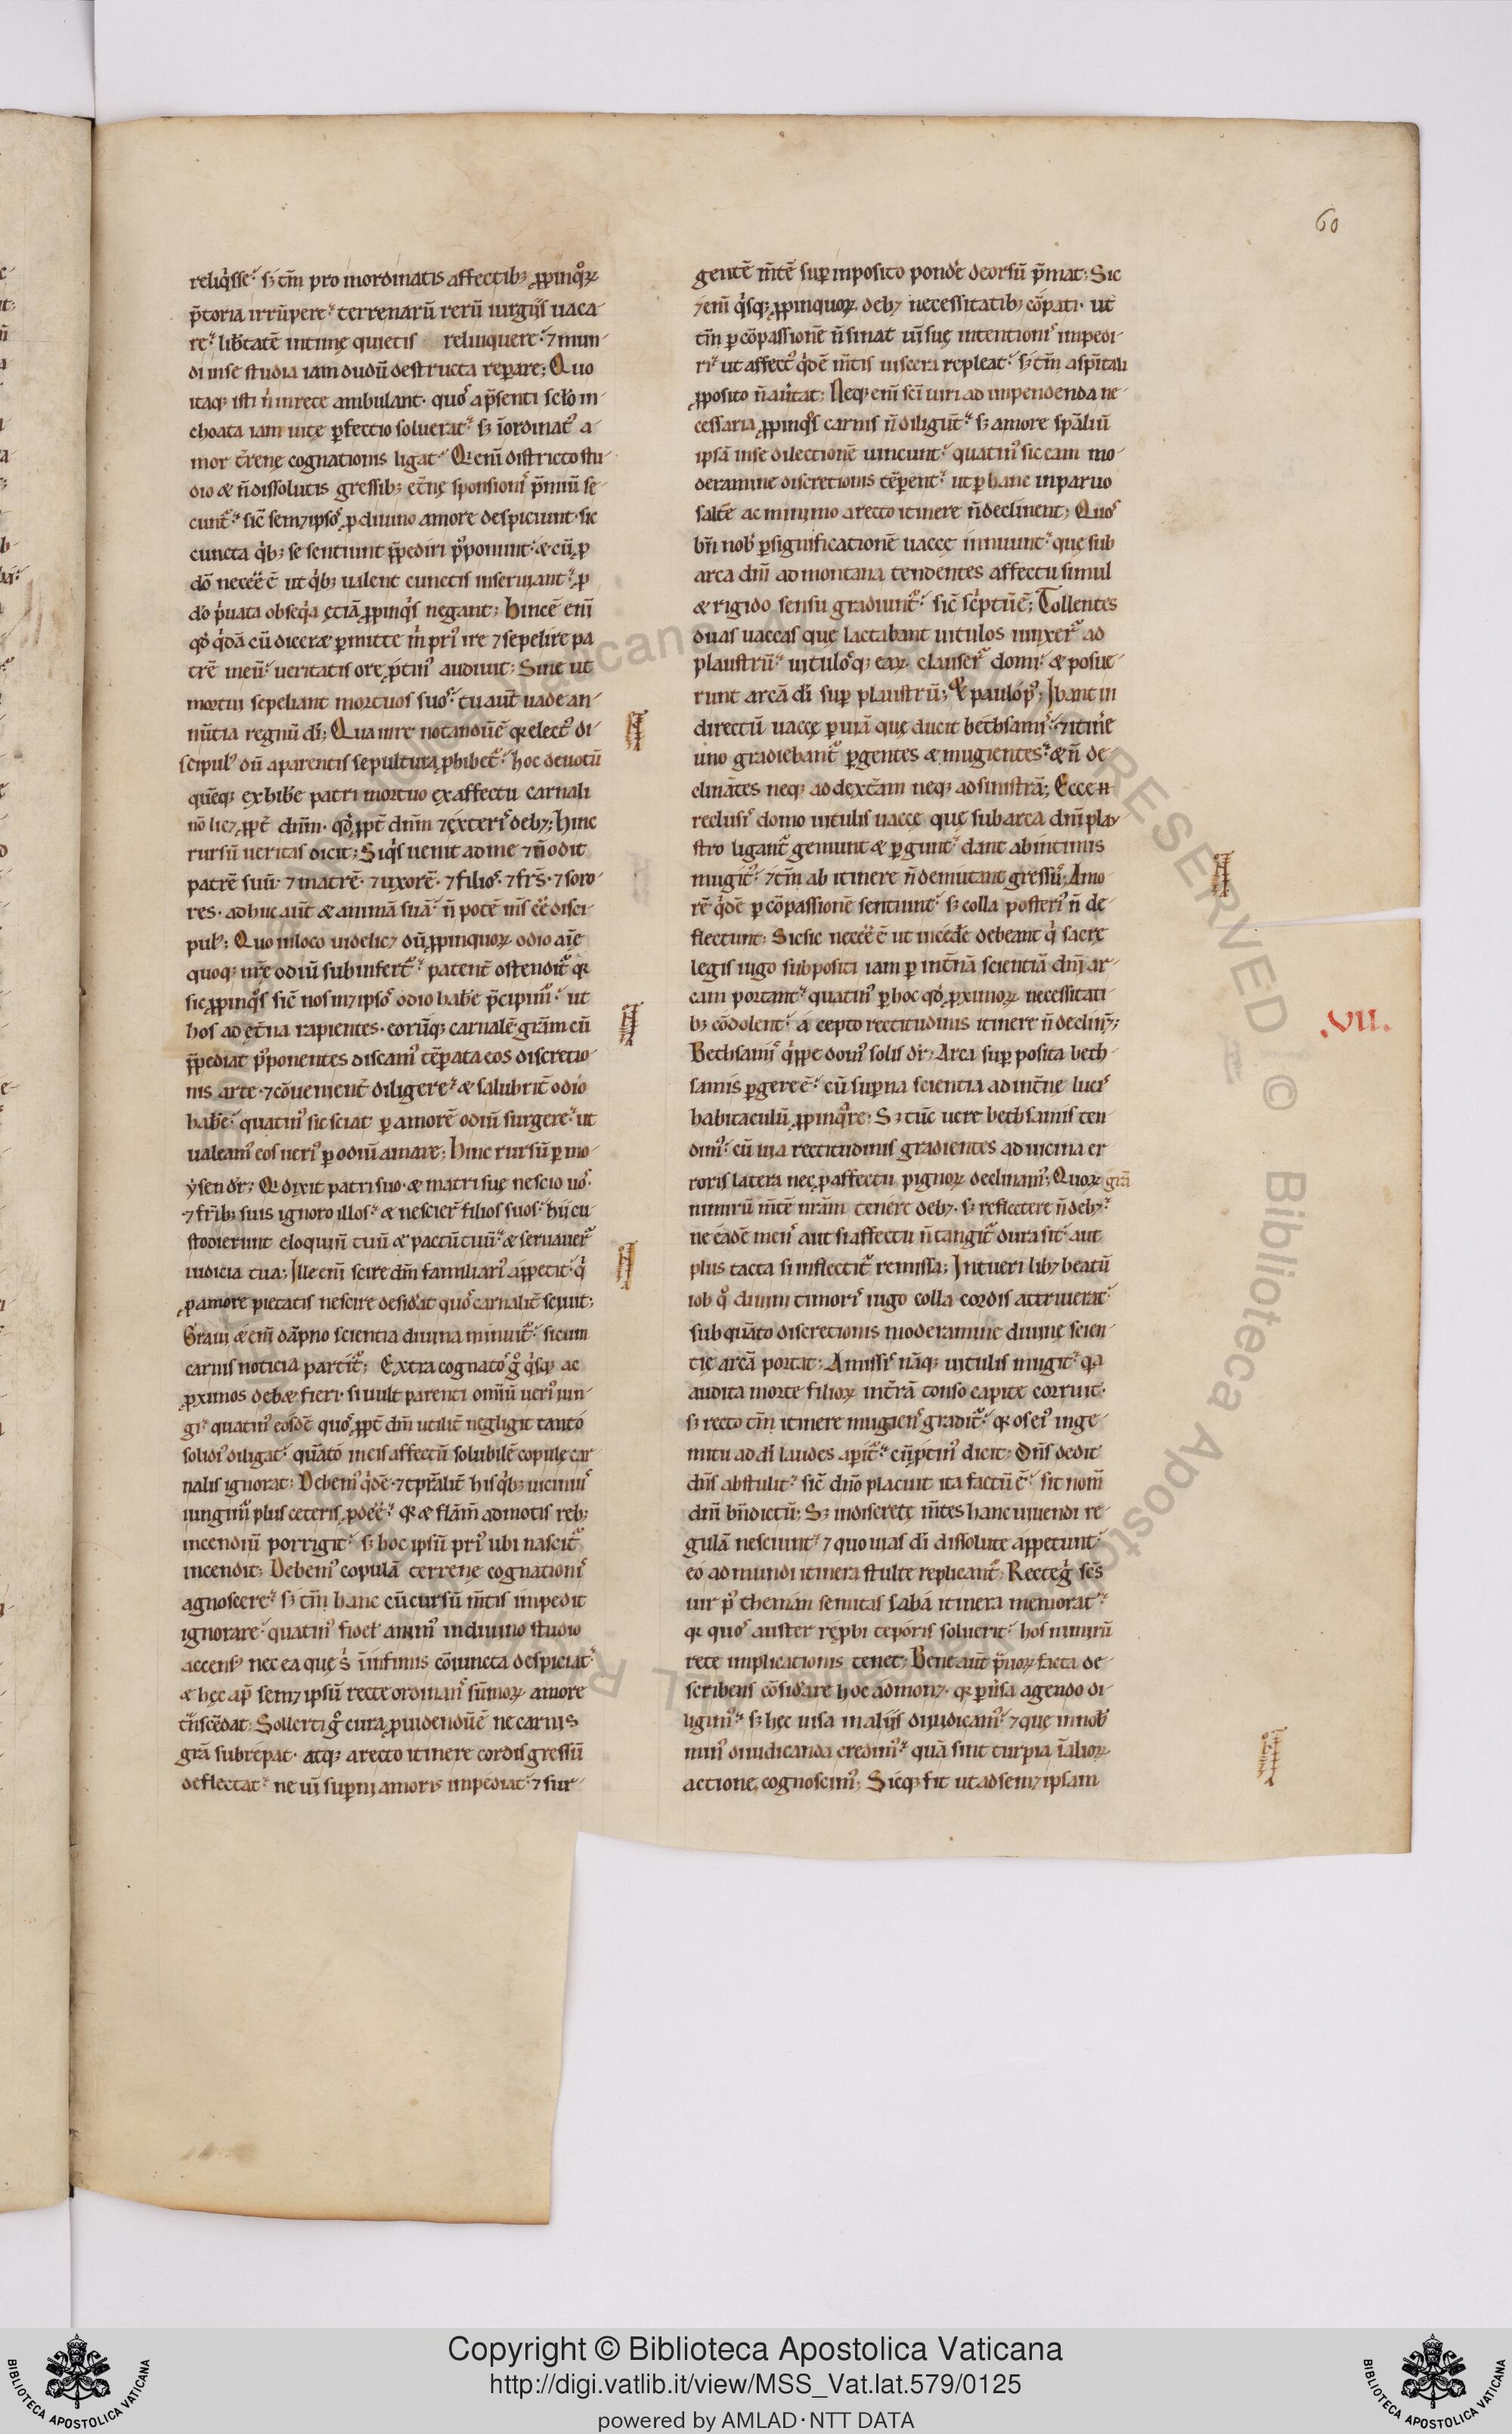 60
reliq̇sse. sꝫ tm̄ pro inordinatis affectibꝫ ꝓpinqͦꝝ
p̄toria irrūpere. terrenarū rerū iurgijs uaca-
re. lib̄tatē intimę quietis relinquere. ⁊ mun-
di inse studia iam dudū destructa reparare; Quo
itaqꝫ isti ṅ inrete ambulant. quos ap̄senti sclo in-
choata iam uitę perfectio soluerat. sꝫ īordinatꝰ a-
mor t̄renę cognationis ligat. Qi enī districto stu-
dio & n̄ dissolutis gressibꝫ et̄nę sponsionis p̄miū se-
cunt. sic̄ sem⁊ipsos ꝓ diuino amore despiciunt. sic
cuncta q̇bꝫ se sentiunt p̄pediri postponunt. & cū ꝓ
dō necēē ē ut q̇bꝫ ualent cunctis inseruiant. ꝓ
dō ṗuata obseq̇a ętiā ꝓpinq̇s negant; Hinc ē enī
qd̓ q̇dā cū diceret permitte m̓ priꝰ ire ⁊ sepelire pa
trē meū. ueritatis ore ꝓtinꝰ audiuit; Sine ut
mortui sepeliant mortuos suos. tu aut̄ uade an-
nūtia regnū dī; Qua inre notandū ē qꝛ electꝰ di-
scipulꝰ dū a parentis sepultura ꝓhibet̓. hoc deuotū
quēqꝫ exhibe patri mortuo ex affectu carnali
nō lic⁊ ꝓpt̄ dnm̄. qd̓ ꝓpt̄ dnm̄ ⁊ exteris deb⁊; Hinc
rursū ueritas dicit; Siq̇s uenit ad me ⁊ n̄ odit
patrē suū. ⁊ matrē. ⁊ uxorē. ⁊ filios. ⁊ frs̄. ⁊ soro-
res. adhuc aut̄ & animā suā. n̄ potē m̄s ēē disci-
pulꝰ; Quo inloco uidelic⁊ dū ꝓpinquoꝝ odio aīę
quoqꝫ nr̄ę odiū subinfert̓. patent̄ ostendit̓ qꝛ
sic ꝓpinq̇s sic̄ nos m⁊ipsos odio habe p̄cipimur. ut
hos ad et̄na rapientes. eorūqꝫ carnalē grām cū
p̄pediat postponentes discamꝰ tēperata eos discretio-
nis arte. ⁊ cōuenient̄ diligere. & salubrit̄ odio
habe. quatinꝰ sic sciat per amorē odiū surgere. ut
ualeamꝰ eos ueriꝰ per odiū amare; Hinc rursū per mo-
ẏsen dr̄; Qi dixit patri suo. & matri suę nescio uos.
⁊ frib̄ꝫ suis ignoro illos. & nescier̄ filios suos. hij cu
stodierunt eloquiū tuū & pactū tuū. & seruauer̄
iudicia tua; Ille enī scire dm̄ familiariꝰ appetit. q̇
ꝓ amore pietatis nescire desid̓at quos carnalit̄ sciuit;
Graui & enī dāpno scientia diuina minuit̓. si cum
carnis noticia partit̓; Extra cognatos gͦ q̇sqꝫ ac
ꝓximos debet fieri. si uult parenti omniū ueriꝰ iun-
gi. quatinꝰ eosdē quos ꝓpt̄ dm̄ utilit̄ negligit tanto
solidiꝰ diligat. quāto ineis affectū solubilē copulę car
nalis ignorat; Debemꝰ q̇dē. ⁊ tp̄ralit̄ his q̇bꝫ uicinius
iungimur plus ceteris ꝓdēē. qꝛ & flām̄ admotis rebꝫ
incendiū porrigit. sꝫ hoc ipsū priꝰ ubi nascit̓
incendit; Debemꝰ copulā terrenę cognationis
agnoscere. sꝫ tm̄ hanc cū cursū m̄tis impedit
ignorare. quatinꝰ fidel̓ animꝰ in diuino studio
accensꝰ nec ea quę s̄ īinfimis cōiuncta despiciat.
& hęc ap̄ sem⁊ ipsū recte ordinans sūmoꝝ amore
tn̄scēdat; Sollerti gͦ cura ꝓuidendū ē ne carnis
grā subrepat. atqꝫ a recto itinere cordis gressū
deflectat. ne uī supernj amoris impediat. ⁊ sur-
gentē m̄tē super inposito pondere deorsū p̄mat; Sic
⁊enī q̇sqꝫ ꝓpinquoꝝ deb⁊ necessitatibꝫ cōpati. ut
tm̄ per cōpassionē n̄ sinat uī suę intentionis impedi-
ri. ut affectꝰ q̇dē m̄tis uiscera repleat. sꝫ tm̄ a spītali
ꝓposito n̄ au̓tat; Neqꝫ enī scī uiri ad impendenda ne-
cessaria ꝓpinq̇s carnis n̄ diligūt. sꝫ amore spāliū
ipsā inse dilectionē uincunt. quatinꝰ sic eam mo-
deramine discretionis tēperent. ut per hanc inparuo
saltē ac minimo a recto itinere n̄ declinent; Quos
bn̄ nob̓ per significationē uaccę innuunt. quę sub
arca dn̄i ad montana tendentes affectu simul
& rigido sensu gradiunt̓. sic̄ sc̓ptū ē; Tollentes
duas uaccas quę lactabant uitulos iunxer̄ ad
plaustrū. uitulosqꝫ eaꝝ clauser̄ domi. & posue-
runt arcā dī super plaustrū; Et paulo pꝰ; Ibant in
directū uaccę per uiā quę ducit bethsamis. ⁊ itinere
uno gradiebant̓ pergentes & mugientes. & n̄ de
clināntes neqꝫ ad dext̄am neqꝫ ad sinistrā; Ecce n̄
reclusis domo uitulis uaccę quę sub arca dn̄i plau
stro ligant̓ gemunt & pergunt. dant ab intimis
mugitꝰ. ⁊ tm̄ ab itinere n̄ demutant gressū; Amo
rē q̇dē per cōpassionē sentiunt. sꝫ colla posteriꝰ n̄ de-
flectunt; Sic sic necēē ē ut incede debeant q̇ sacrę
legis iugo subpositi iam per int̄nā scientiā dn̄i ar-
cam portant. quatinꝰ per hoc qd̓ ꝓximoꝝ necessitati-
bꝫ cōdolent. a cepto rectitudinis itinere n̄ declinent;
.VII.
Bethsamis q̇ppe domꝰ solis dr̄; Arca super posita beth-
samis pergere ē. cū superna scientia ad int̄nę lucis
habitaculū ꝓpinq̇re; Sꝫ tūc uere bethsamis ten
dimꝰ. cū uia rectitudinis gradientes ad uicina er
roris latera nec ꝓ affectu pignoꝝ declinamꝰ; Quoꝝ grā
nimirū m̄tē nr̄am tenere deb⁊. sꝫ reflectere n̄ deb⁊.
ne eadē mens aut si affectu n̄ tangit̓ dura sit. aut
plus tacta si inflectit̓ remissa; Intueri lib⁊ beatū
iob qͦ diuini timoris iugo colla cordis attriuerat.
sub quāto discretionis moderamine diuinę scien-
tię arcā portat; Amissis nāqꝫ uitulis mugit. qa
audita morte filioꝝ int̄rā tonso capite corruit.
sꝫ recto tm̄ itinere mugiens gradit̓. qꝛ os eiꝰ inge-
mitu ad dī laudes aperit̓. cū ꝓtinꝰ dicit; Dn̄s dedit
dn̄s abstulit. sic̄ dn̄o placuit ita factū ē. sit nom̄
dn̄i bn̄dictū; Sꝫ indiscretę m̄tes hanc uiuendi re-
gulā nesciunt. ⁊ quo uias dī dissolute appetunt.
eo ad mundi itinera stulte replicant̓; Recte gͦ scs̄
uir pꝰ theman semitas saba itinera memorat.
qꝛ quos auster rępbi teporis soluerit. hos nimirū
rete implicationis tenet; Bene aut̄ prauoꝝ facta de-
scribens cōsid̓are hoc admon⁊. qꝛ peruersa agendo di-
ligimꝰ. sꝫ hęc uisa inalijs diiudicamꝰ. ⁊ quę innob̓
minꝰ diiudicanda credimꝰ. quā sint turpia īalioꝝ
actione cognoscimꝰ; Sicqꝫ fit ut ad sem⁊ipsam
Copyright © Biblioteca Apostolica Vaticana
http://digi.vatlib.it/view/MSS_Vat.lat.579/0125
powered by AMLAD·NTT DATA
BIBLIOTECA APOSTOLICA VATICANA
BIBLIOTECA APOSTOLICA VATICANA